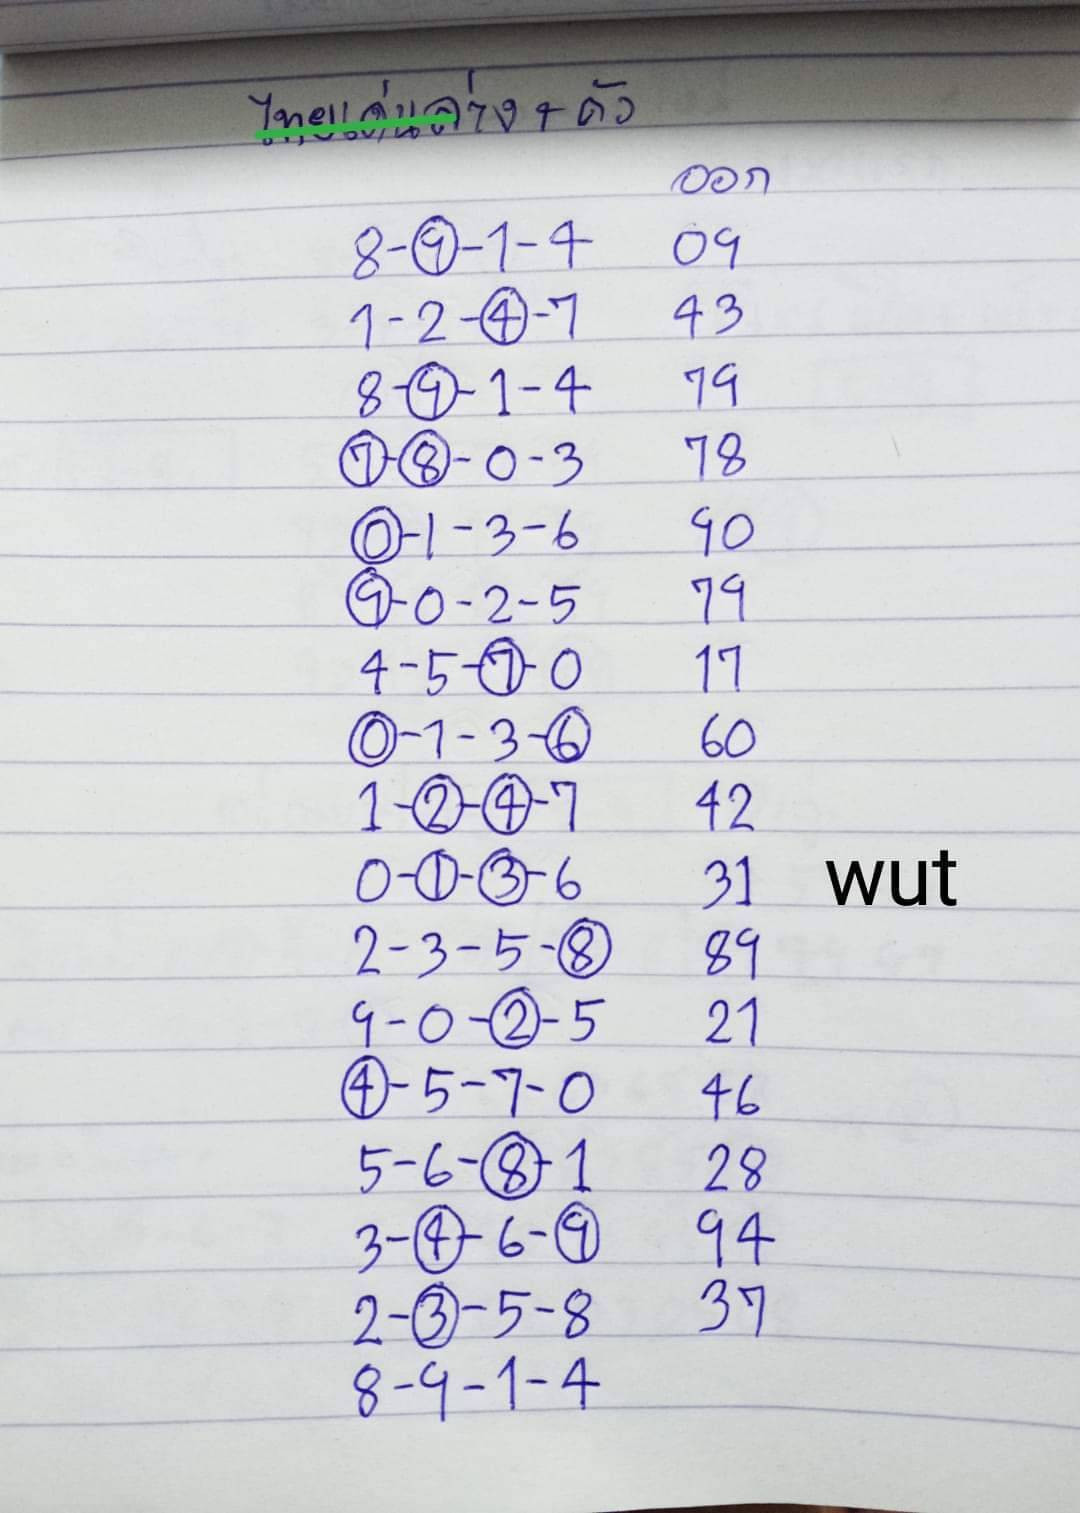 ไทยเด่นล่าง 4 ตัว
ออก
8-9-1-4 09
1-2-4-7 43
8-9-1-4 79
7-8-0-3 78
0-1-3-6 90
9-0-2-5 79
4-5-7-0 17
0-1-3-6 60
1-2-4-7 42
0-1-3-6 31 wut
2-3-5-8 89
9-0-2-5 21
4-5-7-0 46
5-6-8-1 28
3-4-6-9 94
2-3-5-8 37
8-9-1-4